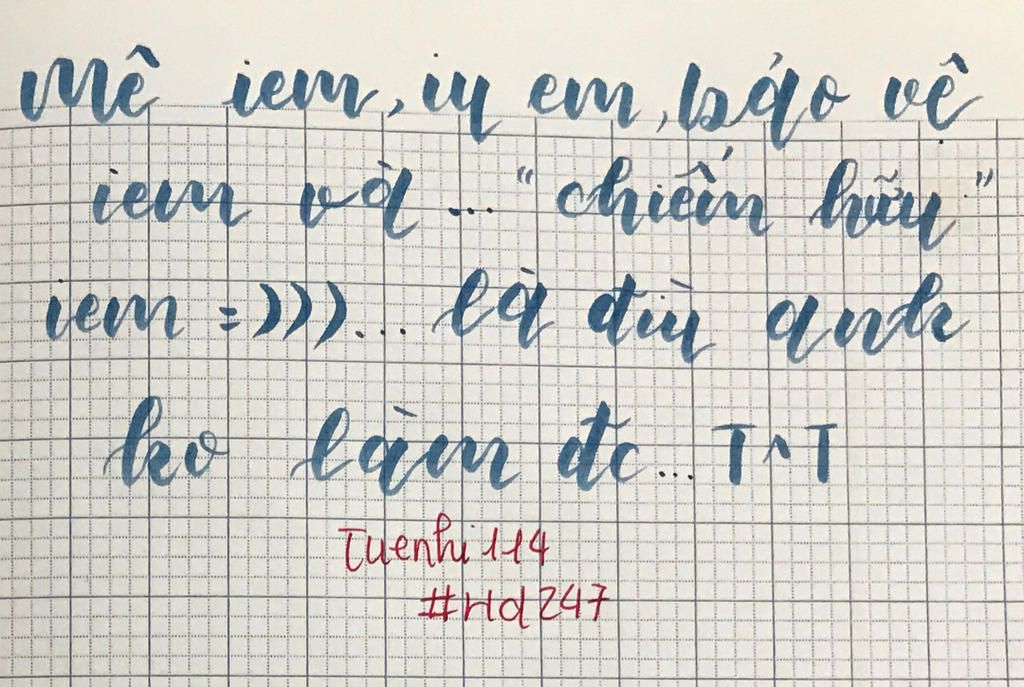 Mê iem, iu em, bảo vê
iem và ... "chiếm hữu"
iem =))) ... là đìu anh
ko làm đc ... T^T
Tuenhi 114
#rld247